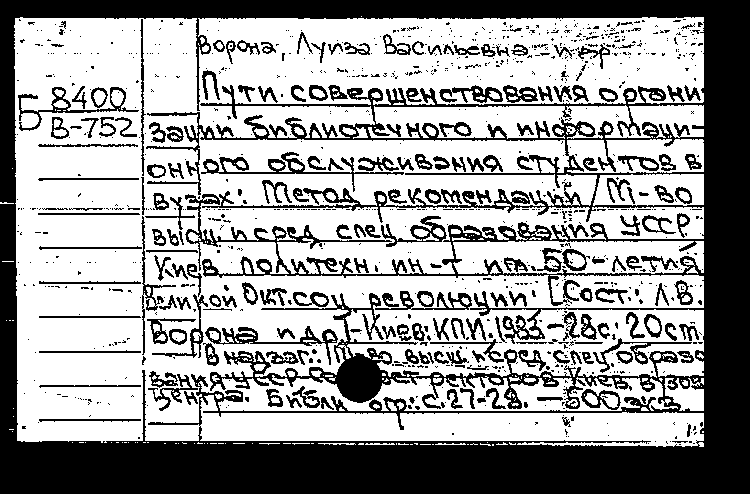 Ворона, Луиза Васильевна и др.
Б 8400
В-752
Пути совершенствования органи
зации библиотечного и информаци-
онного обслуживания студентов в
вузах: Метод. рекомендации / М-во
высш. и сред. спец. образования УССР
Киев. политехн. ин-т им. 50-летия
Великой Окт. соц. революции; [Сост.: Л.В.
Ворона и др.]-Киев: КПИ, 1983-28с.; 20см
В надзаг.: М-во высш. и сред. спец. образо
вания УССР Совет ректоров Киев. вузов
центра. Библиогр.: с.27-28. — 500 экз.